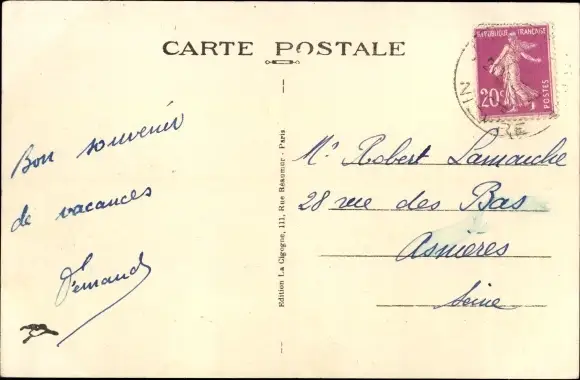 CARTE POSTALE
Bon souvenir
de vacances
Fernand
Edition La Cigogne, 111, Rue Réaumur - Paris
RÉPUBLIQUE FRANÇAISE
20c
POSTES
Mr Robert Lamarche
28 rue des Bas
Asnières
Seine